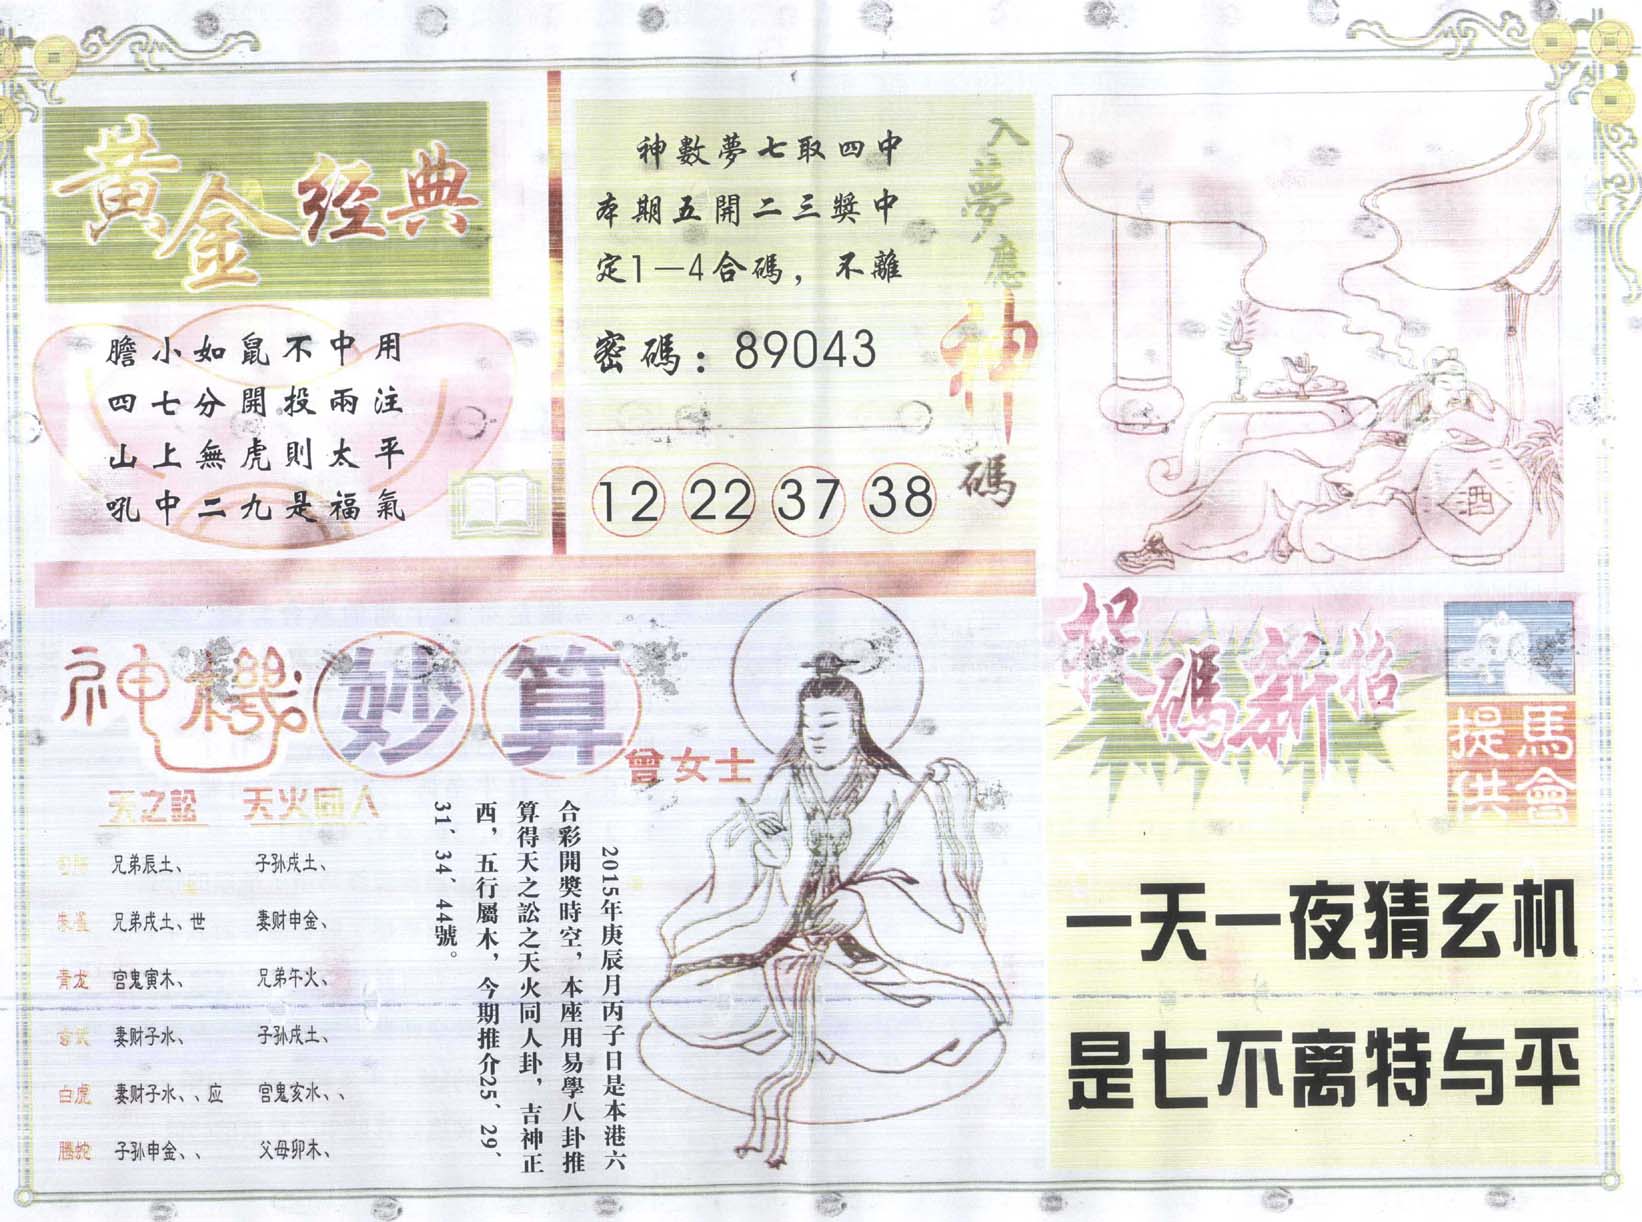 黃金经典
膽小如鼠不中用
四七分開投兩注
山上無虎則太平
吼中二九是福氣
神數夢七取四中
本期五開二三獎中
定1—4合碼，不離
密碼：89043
12 22 37 38
入夢應神碼
酒
神機妙算
曾女士
天之訟 天火同人
兄弟辰土、 子孙戌土、
朱雀 兄弟戌土、世 妻财申金、
青龙 宫鬼寅木、 兄弟午火、
玄武 妻财子水、 子孙戌土、
白虎 妻财子水、、应 宫鬼亥水、、
騰蛇 子孙申金、、 父母卯木、
2015年庚辰月丙子日是本港六
合彩開獎時空，本座用易學八卦推
算得天之訟之天火同人卦，吉神正
西，五行屬木，今期推介25、29、
31、34、44號。
捉碼新招
馬會提供
一天一夜猜玄机
是七不离特与平